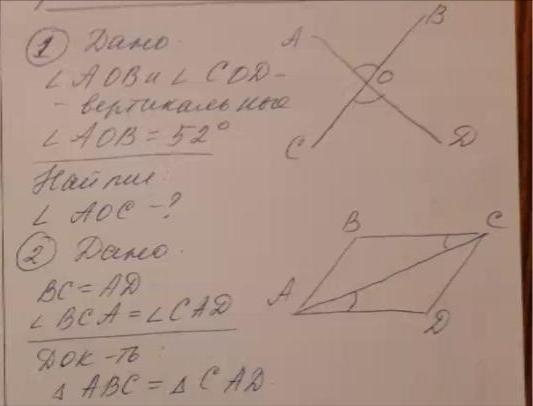 1 Дано
∠ AOB и ∠ COD -
- вертикальные
∠ AOB = 52°
Найти
∠ AOC - ?
A
B
O
C
D
2 Дано
BC = AD
∠ BCA = ∠ CAD
Док-ть
Δ ABC = Δ CAD
B
C
A
D